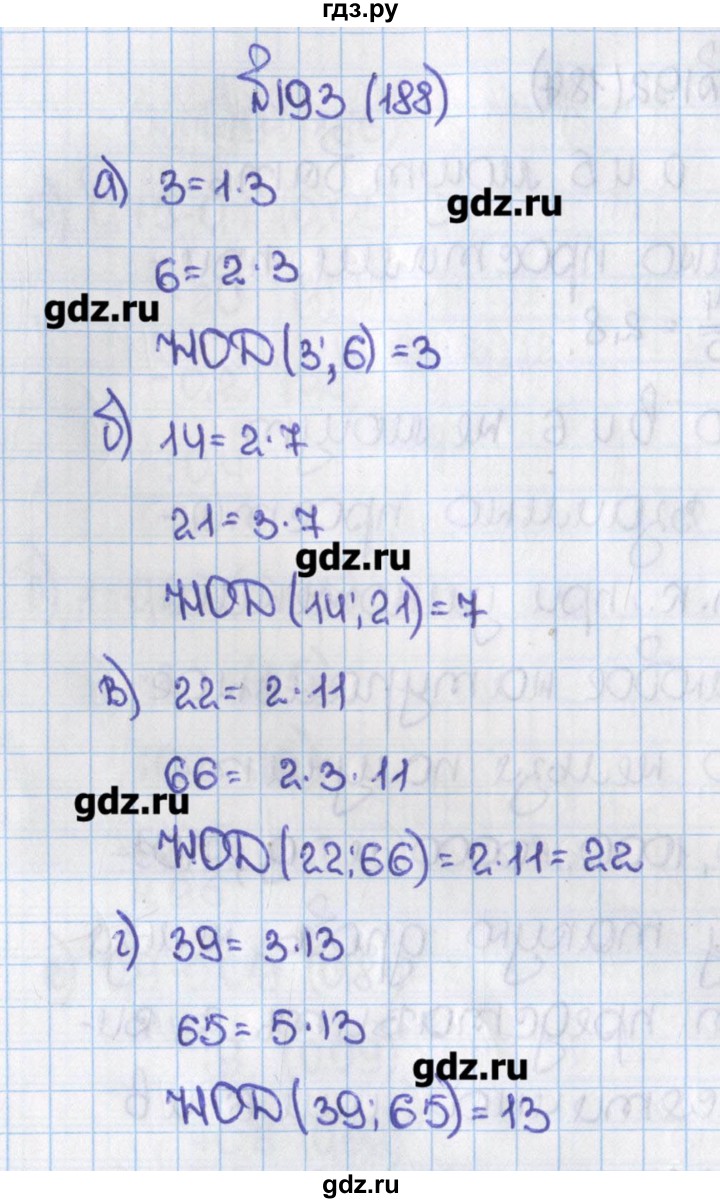 гдз.ру
№193 (188)
а) 3=1·3
gdz.ru
6=2·3
gdz.ru
НОД(3;6)=3
б) 14=2·7
21=3·7
gdz.ru
НОД(14;21)=7
в) 22=2·11
66=2·3·11
gdz.ru
НОД(22;66)=2·11=22
г) 39=3·13
65=5·13
gdz.ru
НОД(39;65)=13
гдз.ру